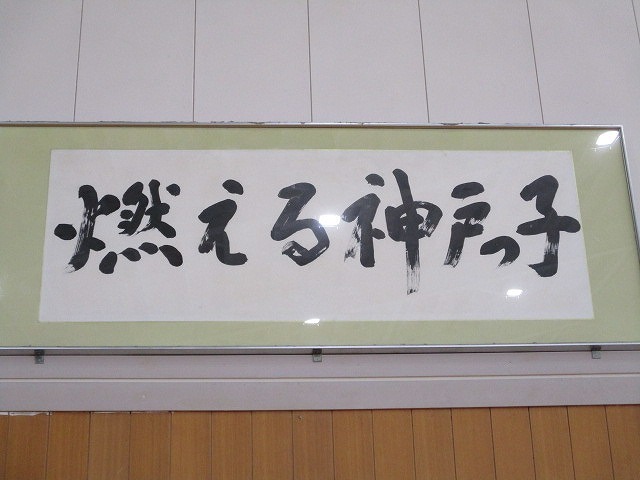 燃える神戸っ子